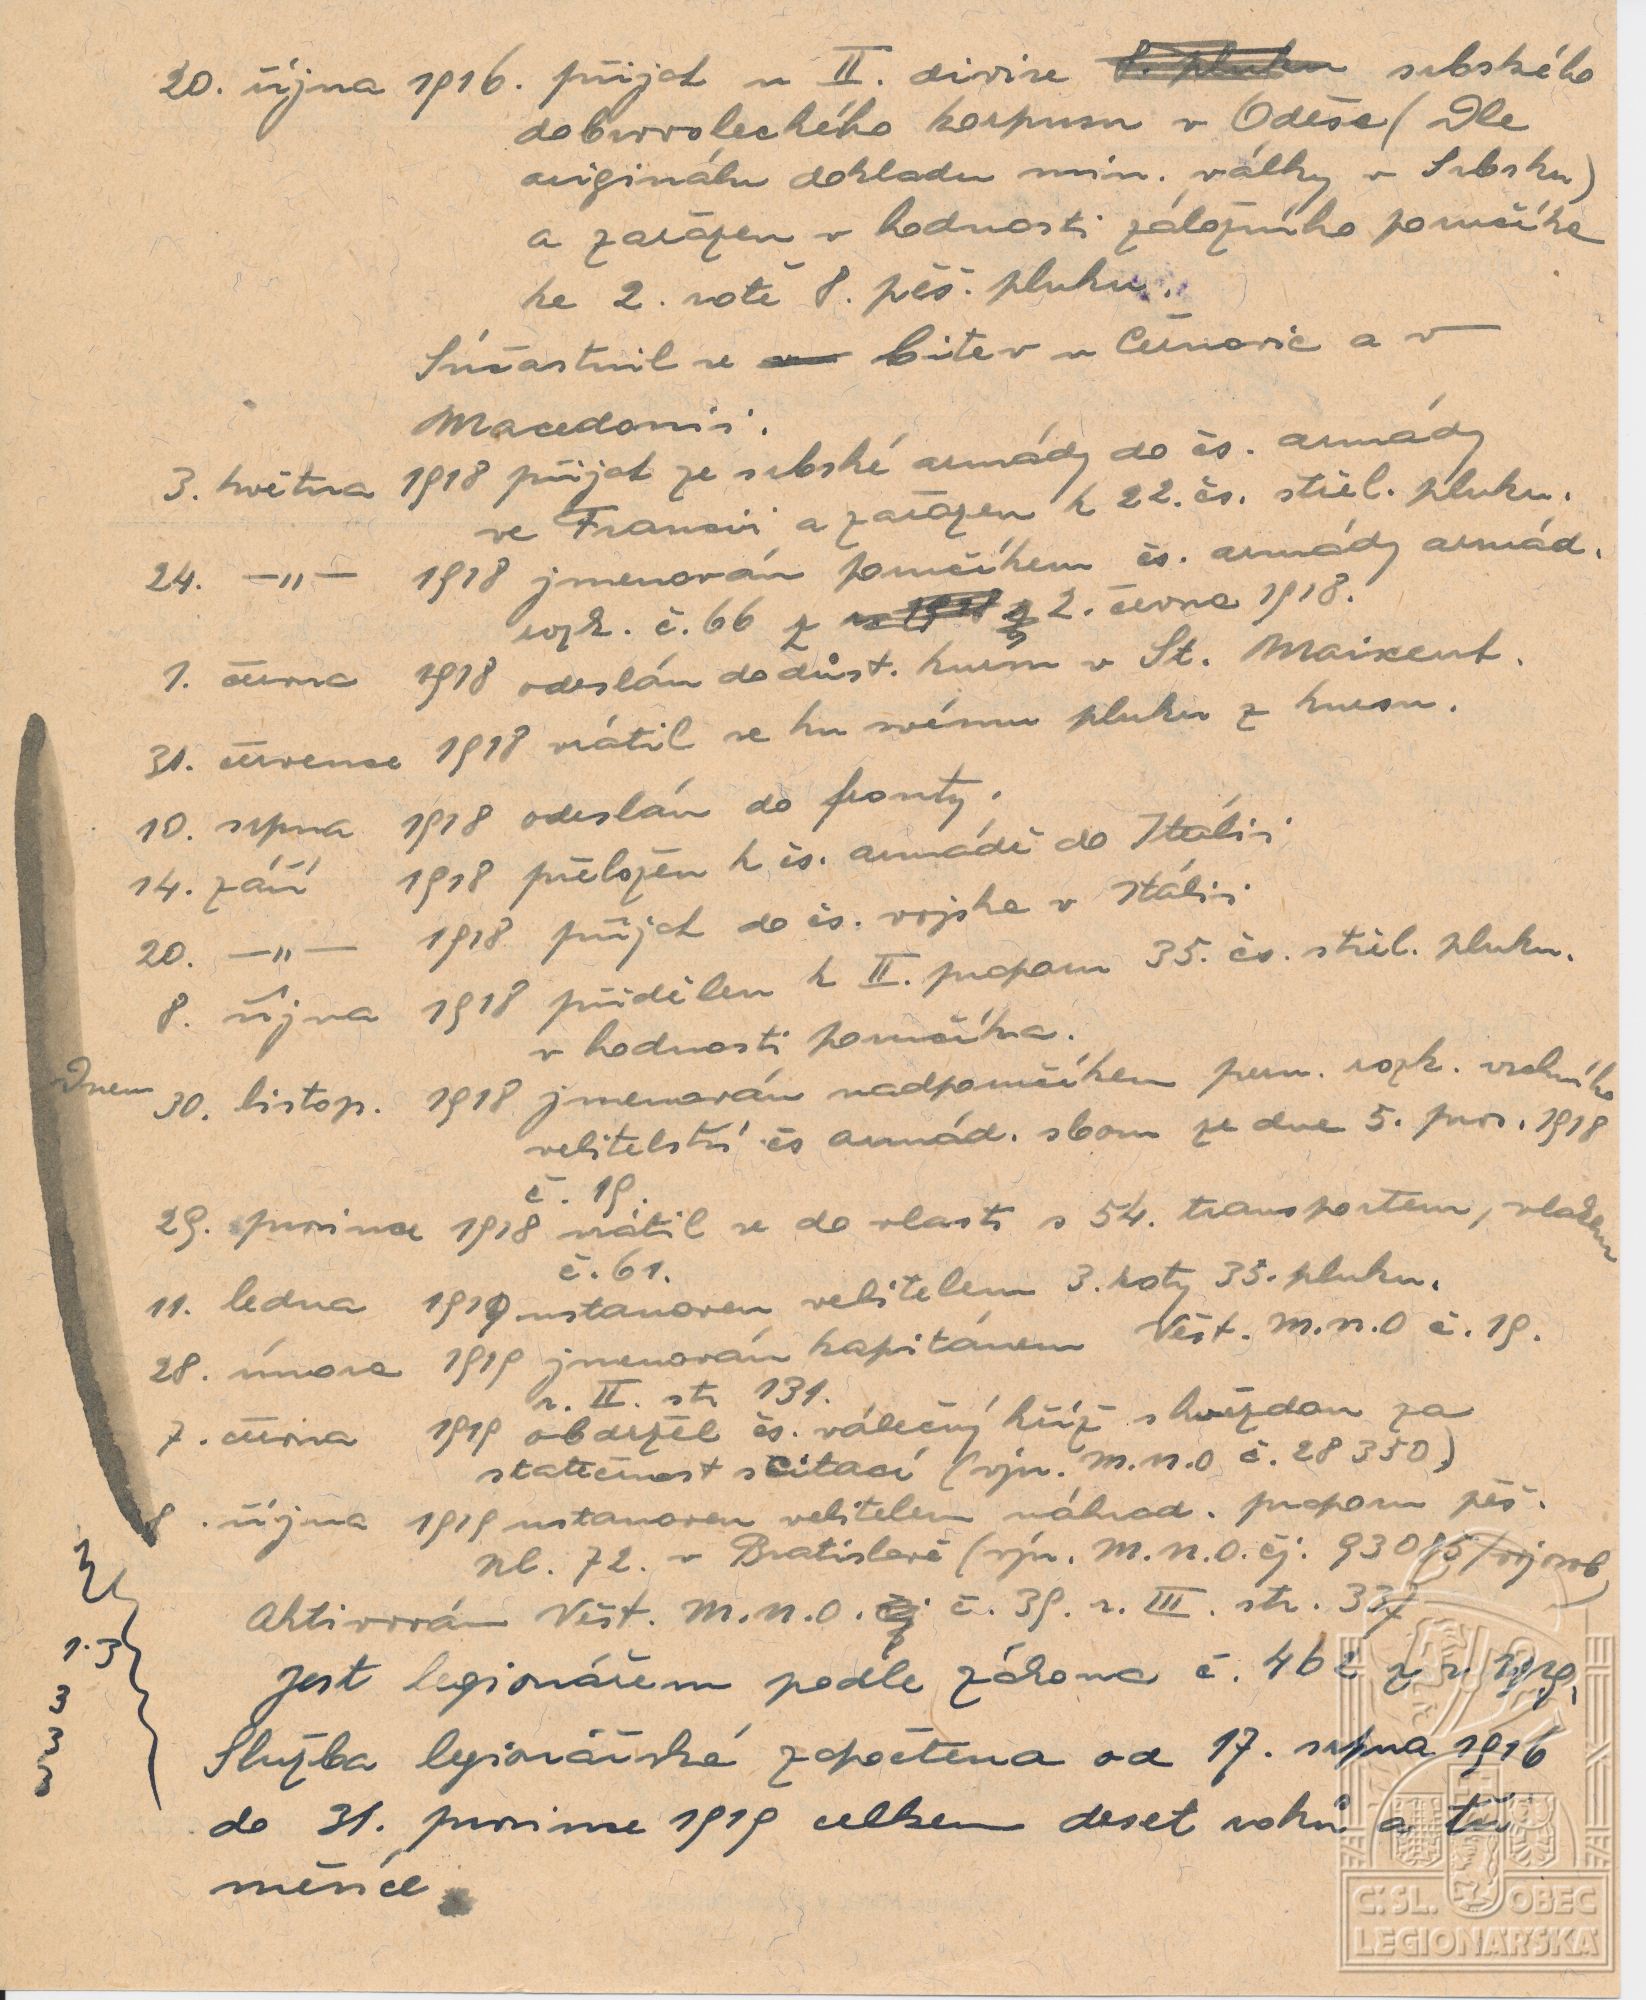 20. října 1916. přijat u II. divise srbského
dobrovoleckého korpusu v Oděse (Dle
originálu dokladu min. války v Srbsku)
a zařazen v hodnosti záložního poručíka
ke 2. rotě 8. pěš. pluku.
Súčastnil se bitev u Černovic a v
Macedonii.
3. května 1918 přijat ze srbské armády do čs. armády
ve Francii a zařazen k 22. čs. střel. pluku.
24. —"— 1918 jmenován poručíkem čs. armády armád.
rozk. č. 66 z 2. června 1918.
1. června 1918 odeslán do důst. kursu v St. Maixent.
31. července 1918 vrátil se ku svému pluku z kursu.
10. srpna 1918 odeslán do fronty.
14. září 1918 přeložen k čs. armádě do Itálii
20. —"— 1918 přijat do čs. vojska v Itálii
8. října 1918 přidělen k II. praporu 35. čs. střel. pluku.
v hodnosti poručíka.
Dnem 30. listop. 1918 jmenován nadporučíkem pers. rozk. vrchního
velitelství čs armád. sboru ze dne 5. pros. 1918
č. 19.
29. prosince 1918 vrátil se do vlasti s 54. transportem, vlakem
č. 61.
11. ledna 1919 ustanoven velitelem 3. roty 35. pluku.
28. února 1919 jmenován kapitánem Věst. M.N.O č. 19.
r. II. str 131.
7. června 1919 obdržel čs. válečný kříž s hvězdou za
statečnost s citací (výn. M.N.O č. 28350)
8. října 1919 ustanoven velitelem náhrad. praporu pěš.
pl. 72. v Bratislavě (výn. M.N.O. čj.
Aktivován Věst. M.N.O. č. 39. r. III. str. 337
Jest legionářem podle zákona č. 462 z r. 1919.
Služba legionářská započtena od 17. srpna 1916
do 31. prosince 1919 celkem deset roků a tři
měsíce
1.3
3
3
3
Č.SL. OBEC
LEGIONÁŘSKÁ